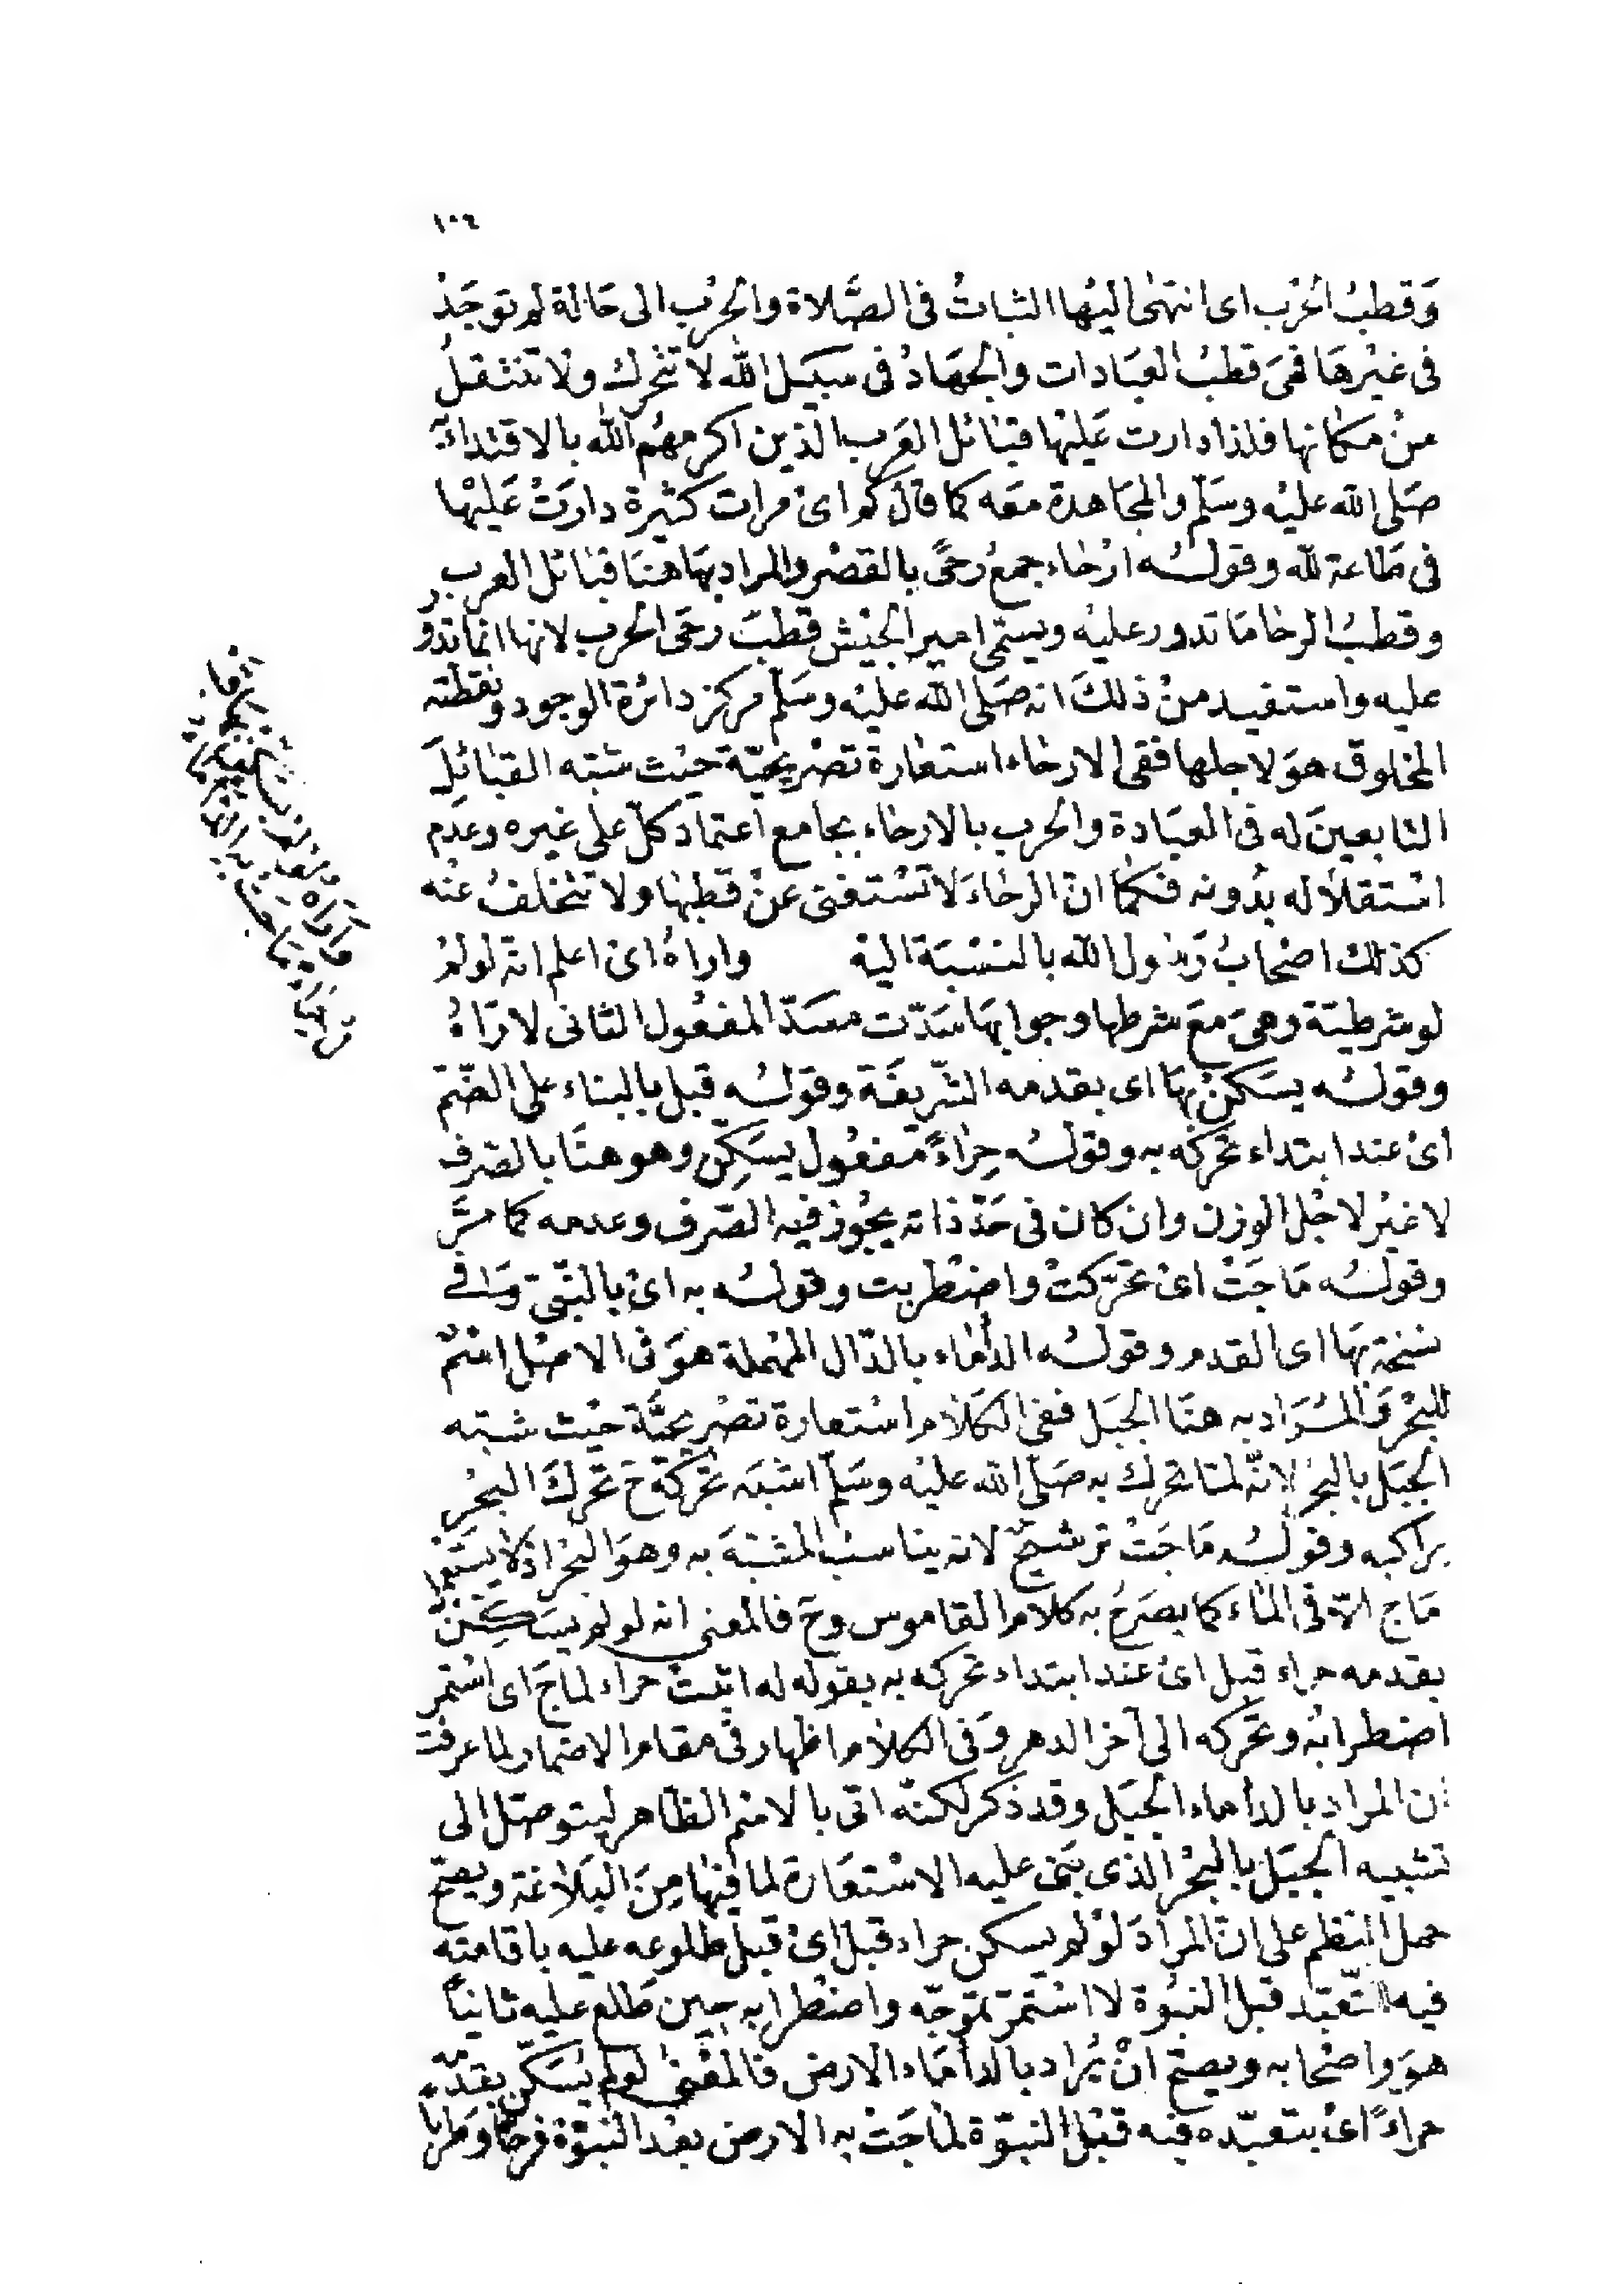 ١٠٦
وَقطبُ الحَرْب اى انتهَى اليْها الثباتُ فى الصَّلاة والحَرْب الى حَالة لم توجَدْ
فى غيْرهَا فهىَ قطبُ العبَادات والجهَادُ فى سبيَل الله لا تتحرك ولا تنتقلُ
منْ مكانها فلذا دارت عَليْها قبَائل العَرب الذين اكرمهُم الله بالاقتداء
صَلى الله عليْه وسَلم والمجَاهدة معَه كما قال كم اىْ مرات كثيْرة دارَتْ عَليْها
فى طَاعة لله وقولُه ارْحَاء جمعُ رَحًى بالقصْر والمراد بهَا هنَا قبَائل العرب
وقطبُ الرحَا مَا تدور عليْه ويسمّى امير الجيْش قطبَ رحَى الحرب لانها انماتدو ر
عليه واستفيد منْ ذلكَ انه صَلى الله عليْه وسَلم مركز دائرة الوجود ونقطته
المخلوق هوَ لاجلها ففى الارحَاء استعَارة تصْريحيّة حيْث شبّه القبَائلَ
التابعينَ له فى العبَادة والحرب بالارحَاء بجامع اعتماد كلّ على غيره وعدم
اسْتقلاله بدُونه فكما انّ الرحَاءَ لا تسْتغنى عنْ قطبهَا ولا تتخلفُ عنْه
كذلك اصْحابُ رَسُول الله بالنسْبَة اليْه واراهُ اىْ اعلم انّه لو لمْ
لو شرطيّة وهىَ معَ شرطها وجوابهَا سَدّت مسَدّ المفعُول الثانى لاراهُ
وقولُه يسَكنْ بهَا اى بقدمه الشّريفَة وقولُه قبل بالبناء على الضّمّ
اىْ عند ابتداء تحَركه به وقولُه حِرَاءً مفعُول يسَكِّن وهو هنَا بالصّرف
لا غيْر لاجْل الوزن وان كان فى حَدّ ذاته يجُوز فيه الصّرف وعدمه كما مَرَّ
وقولُه مَاجَتْ اىْ تحَرّكتْ واضْطربت وقولُه به اىْ بالنّبىّ وَفى
نسْخة بهَا اى القدم وقولُه الدأمَاء بالدّال المهْملة هوَ فى الاصْل اسْمٌ
للبحْر وَالمُرَاد به هنَا الجبَل ففى الكَلَام اسْتعارة تصْريحيَّة حيْث شبّه
الجبَل بالبحْر لانّه لمّا تحرك به صَلى الله عليْه وسَلم اشبَه تحَركهُ ح تحَركَ البحْر
براكبه وقولُه مَاجَتْ ترشيحٌ لانه يناسبُ المشبّهَ به وهوَ البحْر اذ لا يسْتعْمل
مَاج الّا فى الماء كما يصَرحُ به كلام القاموس وح فالمعنى انه لو لم يسَكِّنْ
بقدمه حراء قبل اىْ عند ابتداء تحركه به بقوله له اثبتْ حراء لماجَ اى اسْتمر
اضطرابُه وتحَركه الى آخر الدهر وَفى الكلام اظهار فى مقام الاضمار لما عرفت
ان المراد بالدأماء الجبَل وقد ذكر لكنّه اتى بالاسْم الظاهر ليتوصّل الى
تشبيه الجبَل بالبحْر الذى بَنى عليه الاسْتعَارة لما فيْها مِنَ البَلاغة ويصحّ
حمل النظم على انّ المرادَ لوْ لم يسكن حراء قبل اىْ قبل طلوعه عليه باقامته
فيه للتّعبّد قبل النبوُة لا اسْتمَرّ تموّجه واضطرابه حين طَلع عليه ثانياً
هوَ واصْحابه ويصحّ انْ يُراد بالدأمَاء الارض فالمعْنى لو لم يُسَكّنْ بقدمه
حراءً اىْ بتعبّده فيْه قبْل النبوّة لماجَتْ به الارض بعْد النبوّة فرحًا وطربا